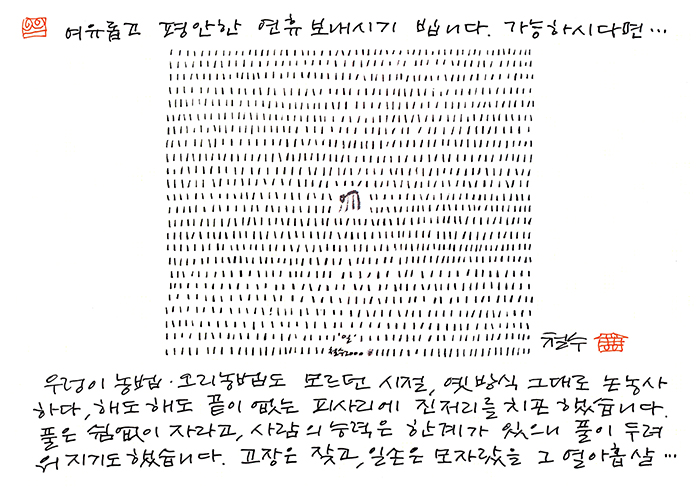 여유롭고 평안한 연휴 보내시기 빕니다. 가능하시다면…
'일'
철수2000
철수
우렁이 농법·오리농법도 모르던 시절, 옛방식 그대로 논농사
하다, 해도 해도 끝이 없는 피사리에 진저리를 치곤 했습니다.
풀은 쉼없이 자라고, 사람의 능력은 한계가 있으니 풀이 두려
워지기도 했습니다. 고장은 잦고, 일손은 모자랐을 그 열아홉살…